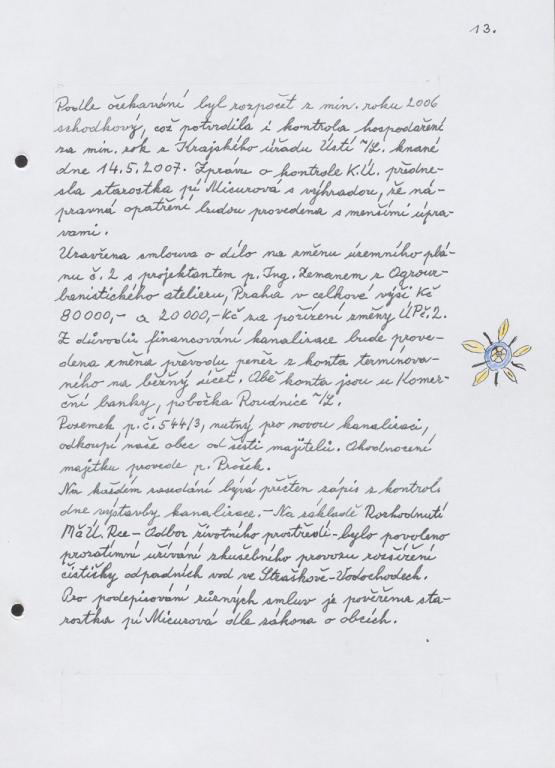 13.
Podle očekávání byl rozpočet z min. roku 2006
schodkový, což potvrdila i kontrola hospodaření
za min. rok z Krajského úřadu Ústí n/L. konané
dne 14.5.2007. Zprávu o kontrole K.Ú. předne-
sla starostka pí Micurová s výhradou, že ná-
pravná opatření budou provedena s menšími úpra-
vami.
Uzavřena smlouva o dílo na změnu územního plá-
nu č. 2 s projektantem p. Ing. Zemanem z Agrour-
banistického atelieru, Praha v celkové výši Kč
80 000,- a 20 000,-Kč za pořízení změny ÚPč.2.
Z důvodů financování kanalizace bude prove-
dena změna převodu peněz z konta terminova-
ného na běžný účet. Obě konta jsou u Komer-
ční banky, pobočka Roudnice n/L.
Pozemek p.č. 544/3, nutný pro novou kanalizaci,
odkoupí naše obec od šesti majitelů. Ohodnocení
majitku provede p. Prošek.
Na každém zasedání bývá přečten zápis z kontrol.
dne výstavby kanalizace. - Na základě Rozhodnutí
MěÚ. Rce - Odbor životního prostředí - bylo povoleno
prozatimní užívání zkušebního provozu rozšíření
čističky odpadních vod ve Straškově-Vodochodech.
Pro podepisování různých smluv je pověřena sta-
rostka pí Micurová dle zákona o obcích.